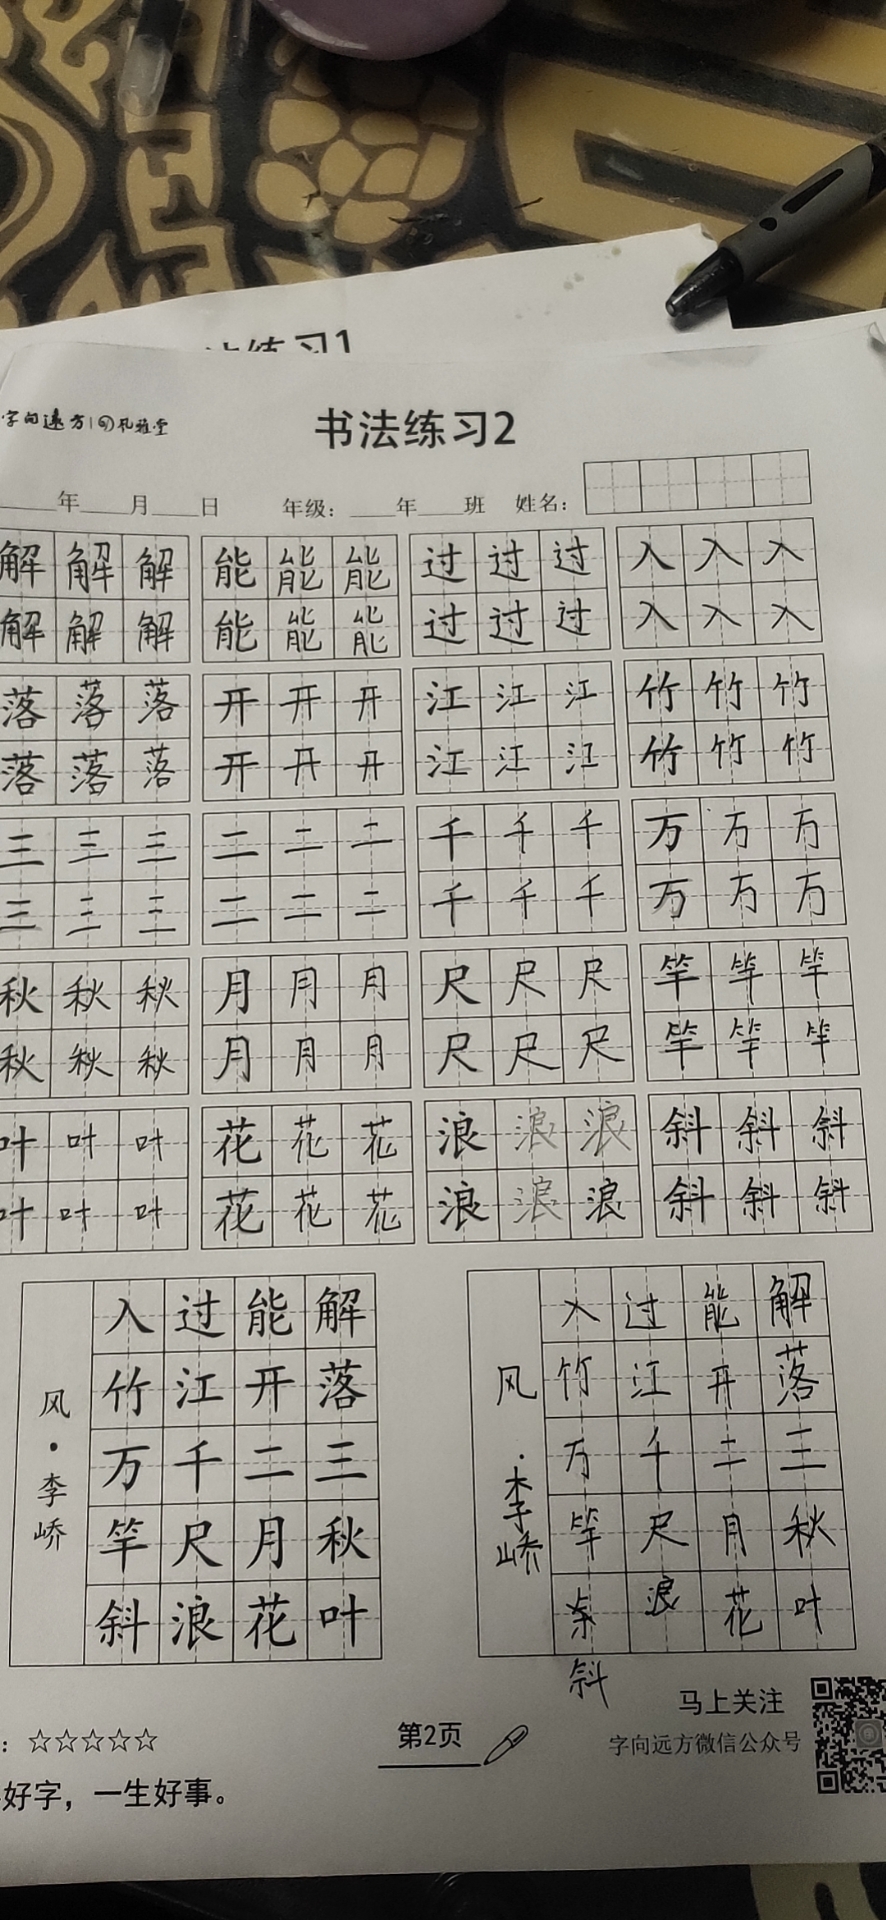 练习1
字向远方
书法练习2
年 月 日 年级： 年 班 姓名：
解解解 能能能 过过过 入入入
解解解 能能能 过过过 入入入
落落落 开开开 江江江 竹竹竹
落落落 开开开 江江江 竹竹竹
三三三 二二二 千千千 万万万
三三三 二二二 千千千 万万万
秋秋秋 月月月 尺尺尺 竿竿竿
秋秋秋 月月月 尺尺尺 竿竿竿
叶叶叶 花花花 浪浪浪 斜斜斜
叶叶叶 花花花 浪浪浪 斜斜斜
风·李峤
入过能解
竹江开落
万千二三
竿尺月秋
斜浪花叶
风·李峤
入过能解
竹江开落
万千二三
竿尺月秋
浪花叶
斜
：☆☆☆☆☆
第2页
马上关注
字向远方微信公众号
好字，一生好事。